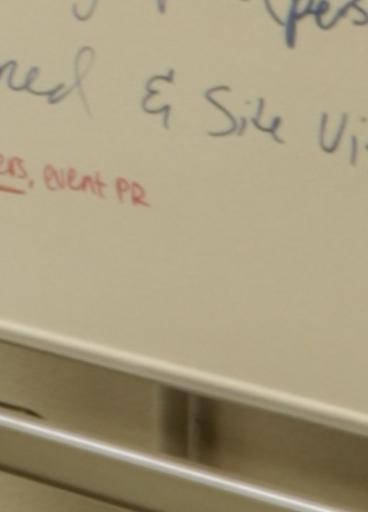 (pers
ned & Site Vi
ers, event PR